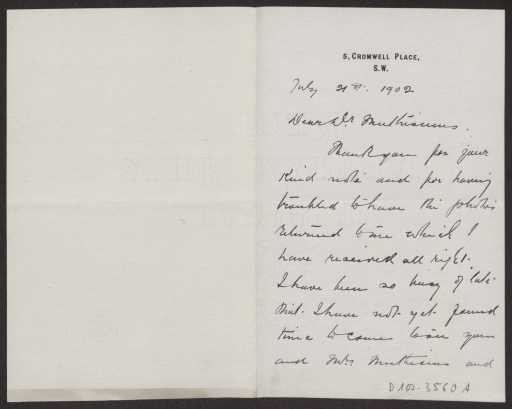 5, CROMWELL PLACE,
S.W.
July 21st. 1902
Dear Dr Muthesius.
Thank you for your
kind note and for having
troubled to have the photos
returned to me which I
have received all right.
I have been so busy of late
that I have not yet found
time to come to see you
and Mrs Muthesius and
D 102-3560 A